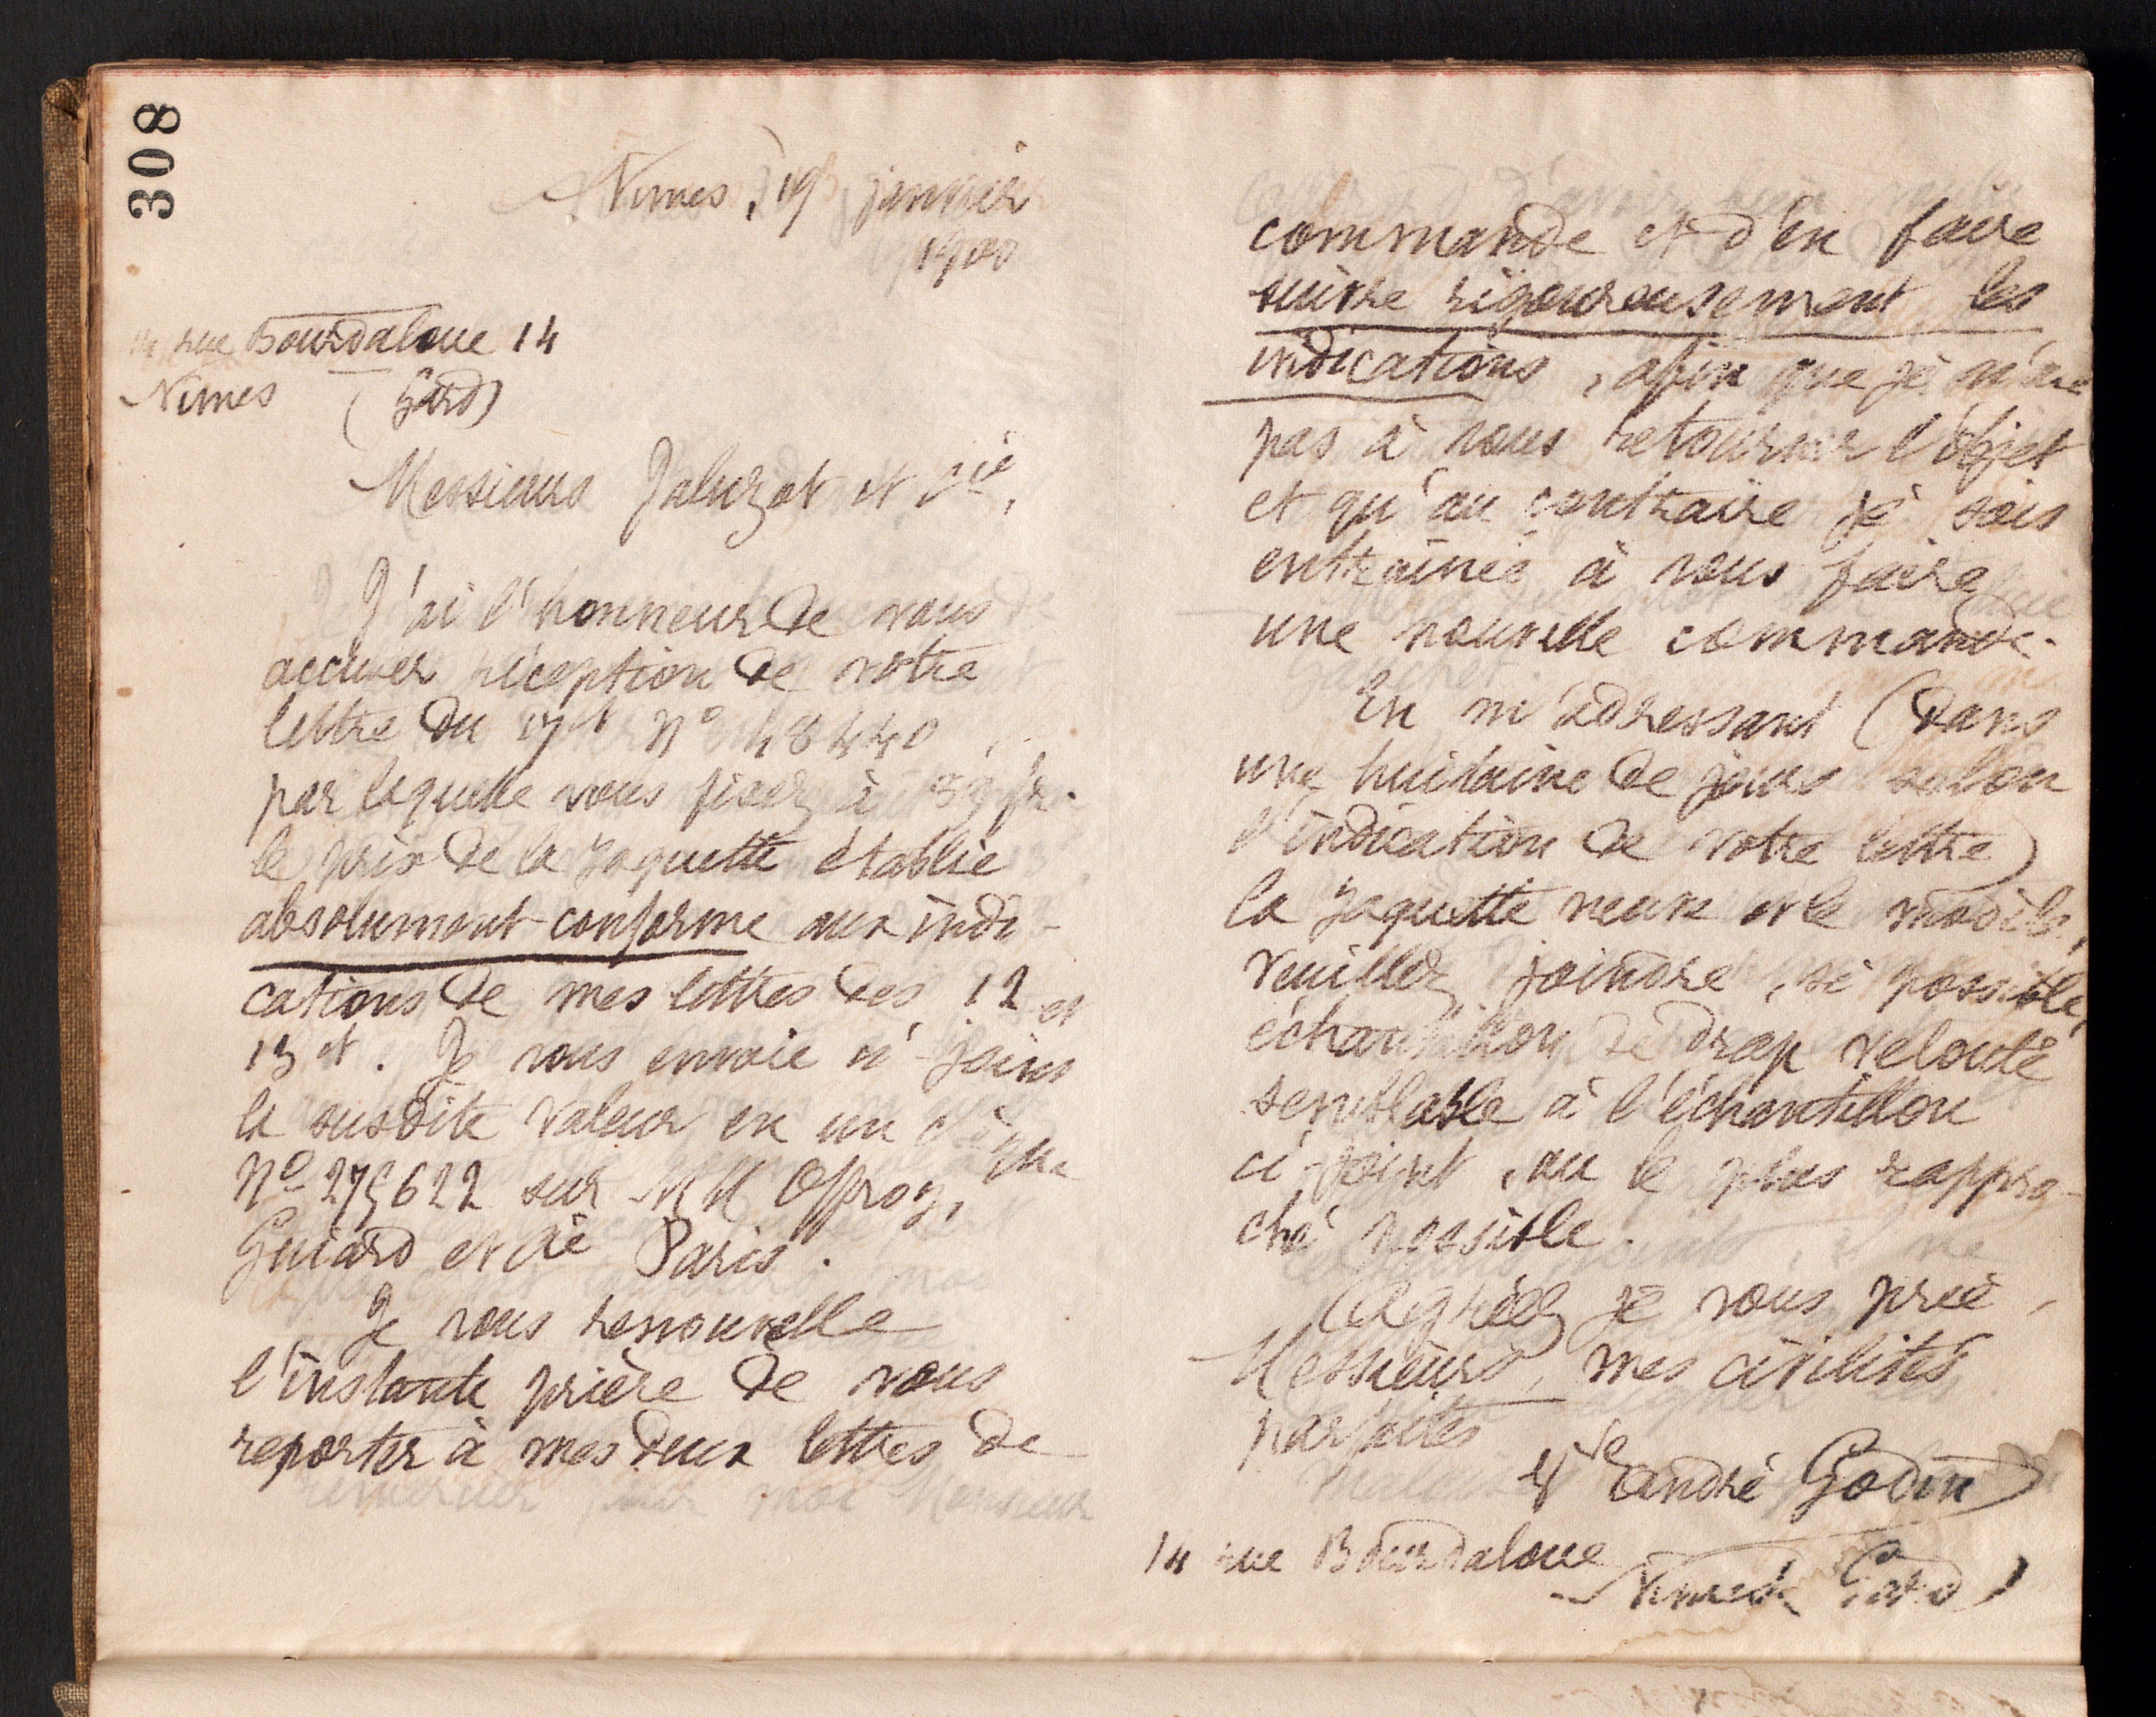 308
Nimes, 19 janvier
1900
14 rue Bourdaloue 14
Nimes (Gard)
Messieurs Jaluzot et Cie,
J'ai l'honneur de vous
accuser réception de votre
lettre du 17 ct No 48440,
par laquelle vous fixez à 39 fr.
le prix de la jaquette établie
absolument conforme aux indi-
cations de mes lettres des 12 et
13 ct. Je vous envoie ci-joint
la susdite valeur en un chèque
No 275622 sur MM Offroy,
Guiard et Cie Paris.
Je vous renouvelle
l'instante prière de vous
reporter à mes deux lettres de
commande et d'en faire
suivre rigoureusement les
indications, afin que je n'aie
pas à vous retourner l'objet
et qu'au contraire je sois
entraînée à vous faire
une nouvelle commande.
En m'adressant (dans
une huitaine de jours selon
l'indication de votre lettre)
la jaquette neuve et le modèle,
veuillez joindre, si possible,
échantillon de drap velouté
semblable à l'échantillon
ci-joint, ou le plus rappro-
ché possible.
Agréez je vous prie,
Messieurs, mes civilités
parfaites
Vve André Godin
14 rue Bourdaloue
Nimes (Gard)